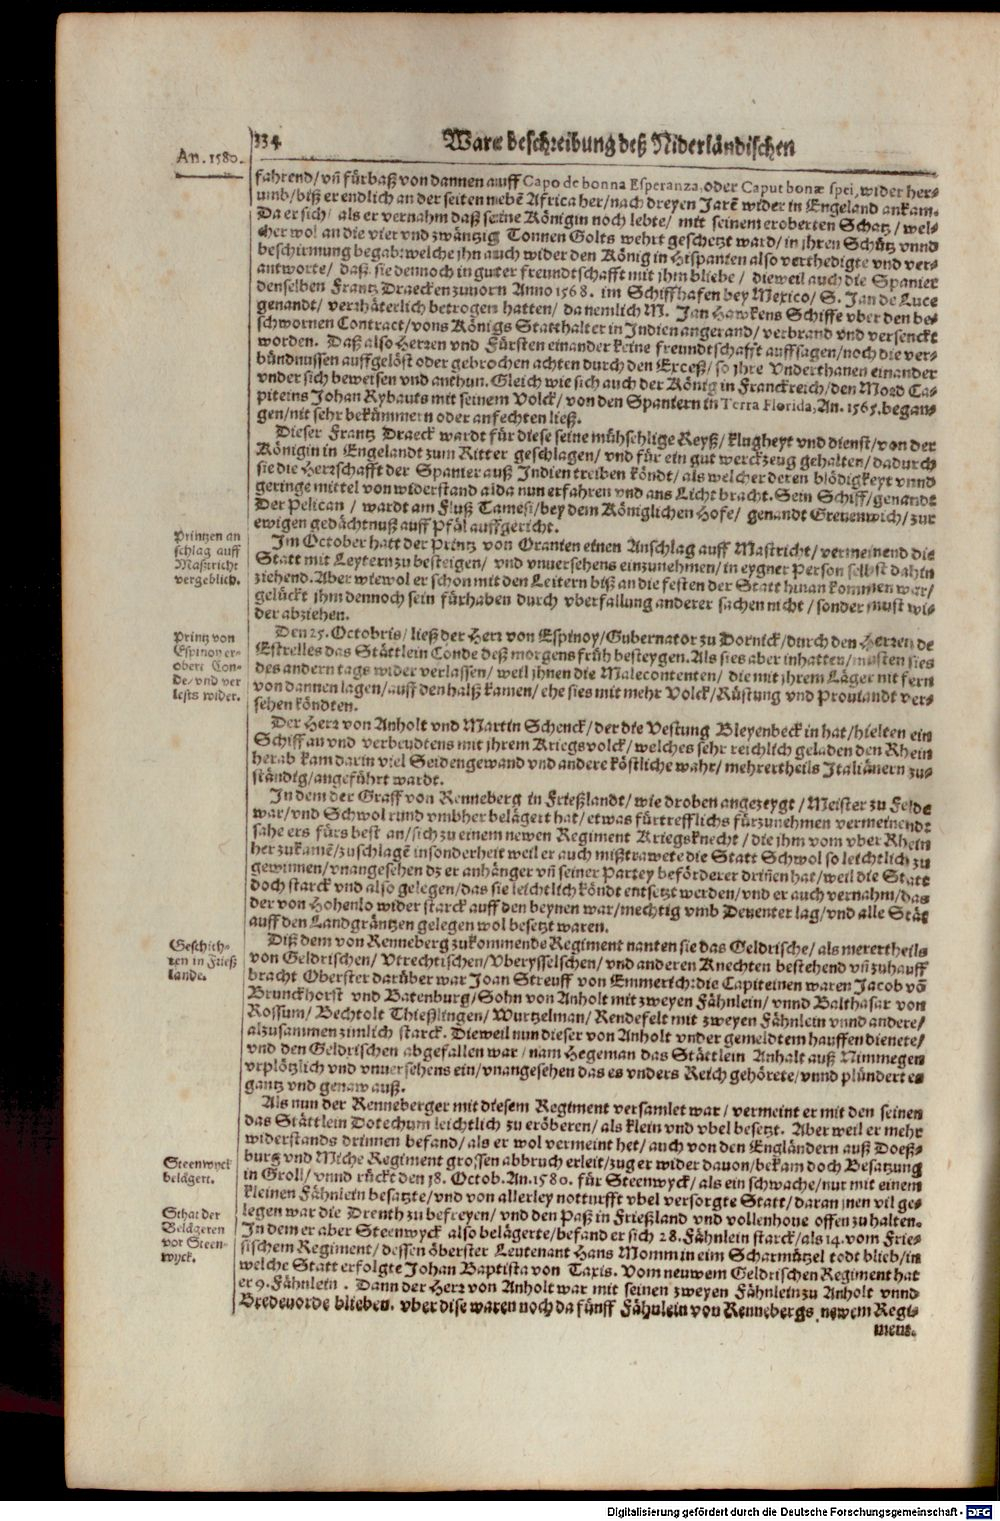 334 Ware beschreibung deß Niderländischen
An. 1580.
fahrend/ vñ fürbaß von dannen auff Capo de bonna Esperanza, oder Caput bonæ spei, wider her-
umb/ biß er endlich an der seiten nebē Africa her/ nach dreyen Jarē wider in Engeland ankam.
Da er sich/ als er vernahm daß seine Königin noch lebte/ mit seinem eroberten Schatz/ wel-
cher wol an die vier vnd zwäntzig Tonnen Golts wehrt geschetzt ward/ in jhren Schütz vnnd
beschirmung begab: welche jhn auch wider den König in Hispanien also verthedigte vnd ver-
antworte/ daß sie dennoch in guter freundtschafft mit jhm bliebe/ dieweil auch die Spanier
denselben Frantz Draecken zuuorn Anno 1568. im Schiffhafen bey Mexico/ S. Jan de Luce
genandt/ verrhäterlich betrogen hatten/ da nemlich M. Jan Hawkens Schiffe vber den be-
schwornen Contract/ vons Königs Statthalter in Indien angerand/ verbrand vnd versenckt
worden. Daß also Herren vnd Fürsten einander keine freundtschafft auffsagen/ noch die ver-
bündnussen auffgelöst oder gebrochen achten durch den Exceß/ so jhre Vnderthanen einander
vnder sich beweisen vnd anthun. Gleich wie sich auch der König in Franckreich/ den Mord Ca-
piteins Johan Rybauts mit seinem Volck/ von den Spaniern in Terra Florida, An. 1565. began-
gen/ nit sehr bekümmern oder anfechten ließ.
Dieser Frantz Draeck wardt für diese seine mühselige Reyß/ klugheyt vnd dienst/ von der
Königin in Engelandt zum Ritter geschlagen/ vnd für ein gut werckzeug gehalten/ dadurch
sie die Herrschafft der Spanier auß Indien treiben köndt/ als welcher deren blödigkeyt vnnd
geringe mittel von widerstand alda nun erfahren vnd ans Licht bracht. Sein Schiff/ genandt
Der Pelican/ wardt am Fluß Tamesi/ bey dem Königlichen Hofe/ genandt Greuenwich/ zur
ewigen gedächtnuß auff Pfäl auffgericht.
Printzen an
schlag auff
Mastricht
vergeblich.
Im October hatt der Printz von Oranien einen Anschlag auff Mastricht/ vermeinend die
Statt mit Leytern zu besteigen/ vnd vnuersehens einzunehmen/ in eygner Person selbst dahin
ziehend. Aber wiewol er schon mit den Leitern biß an die festen der Statt hinan kommen war/
gelückt jhm dennoch sein fürhaben durch vberfallung anderer sachen nicht/ sonder must wi-
der abziehen.
Printz von
Espinoy er-
obert Con-
de/ vnd ver
lests wider.
Den 25. Octobris/ ließ der Herr von Espinoy/ Gubernator zu Dornick/ durch den Herren de
Estrelles das Stättlein Conde deß morgens früh besteygen. Als sies aber inhatten/ musten sies
des andern tags wider verlassen/ weil jhnen die Malecontenten/ die mit jhrem Läger nit fern
von dannen lagen/ auff den halß kamen/ ehe sies mit mehr Volck/ Rüstung vnd Prouiandt ver-
sehen köndten.
Der Herr von Anholt vnd Martin Schenck/ der die Vestung Bleyenbeck in hat/ hielten ein
Schiff an vnd verbeydtens mit jhrem Kriegsvolck/ welches sehr reichlich geladen den Rhein
herab kam darin viel Seidengewand vnd andere köstliche wahr/ mehrertheils Italiänern zu-
ständig/ angeführt wardt.
In dem der Graff von Renneberg in Frießlandt/ wie droben angezeygt/ Meister zu Felde
war/ vnd Schwol rund vmbher belägert hat/ etwas fürtrefflichs fürzunehmen vermeinend:
sahe ers fürs best an/ sich zu einem newen Regiment Kriegsknecht/ die jhm vom vber Rhein
her zukamē/ zuschlagē insonderheit weil er auch mißtrawete die Statt Schwol so leichtlich zu
gewinnen/ vnangesehen dz er anhänger vñ seiner Partey beförderer driñen hat/ weil die Statt
doch starck vnd also gelegen/ das sie leichtlich köndt entsetzt werden/ vnd er auch vernahm/ das
der von Hohenlo wider starck auff den beynen war/ mechtig vmb Deuenter lag/ vnd alle Stät
auff den Landgräntzen gelegen wol besetzt waren.
Geschich-
ten in Frieß
lande.
Diß dem von Renneberg zukommende Regiment nanten sie das Geldrische/ als merertheils
von Geldrischen/ Vtrechtischen/ Vberysselschen/ vnd anderen Knechten bestehend vñ zuhauff
bracht Oberster darüber war Joan Streuff von Emmerich: die Capiteinen waren Jacob vō
Brunckhorst vnd Batenburg/ Sohn von Anholt mit zweyen Fähnlein/ vnnd Balthasar von
Rossum/ Bechtolt Thießlingen/ Wurtzelman/ Rendefelt mit zweyen Fähnlein vnnd andere/
alzusammen zimlich starck. Dieweil nun dieser von Anholt vnder gemeldtem hauffen dienete/
vnd den Geldrischen abgefallen war/ nam Hegeman das Stättlein Anhalt auß Nimmegen
vrplötzlich vnd vnuersehens ein/ vnangesehen das es vnders Reich gehörete/ vnnd plündert es
gantz vnd genaw auß.
Als nun der Renneberger mit diesem Regiment versamlet war/ vermeint er mit den seinen
das Stättlein Dotechum leichtlich zu eröberen/ als klein vnd vbel besetzt. Aber weil er mehr
widerstands drinnen befand/ als er wol vermeint het/ auch von den Engländern auß Doeß-
burg vnd Miche Regiment grossen abbruch erleit/ zug er wider dauon/ bekam doch Besatzung
Steenwyck
belägert.
in Groll/ vnnd rückt den 18. Octob. An. 1580. für Steenwyck/ als ein schwache/ nur mit einem
kleinen Fähnlein besatzte/ vnd von allerley notturfft vbel versorgte Statt/ daran jnen vil ge-
legen war die Drenth zu befreyen/ vnd den Paß in Frießland vnd vollenhoue offen zu halten.
Sthat der
Belägeren
vor Steen-
wyck.
In dem er aber Steenwyck also belägerte/ befand er sich 28. Fähnlein starck/ als 14. vom Frie-
sischem Regiment/ dessen öberster Leutenant Hans Momm in eim Scharmützel todt blieb/ in
welche Statt erfolgte Johan Baptista von Taxis. Vom neuwem Geldrischen Regiment hat
er 9. Fähnlein. Dann der Herr von Anholt war mit seinen zweyen Fähnlein zu Anholt vnnd
Bredeuorde blieben. vber dise waren noch da fünff Fähnlein von Rennebergs newem Regi-
ment.
Digitalisierung gefördert durch die Deutsche Forschungsgemeinschaft - DFG